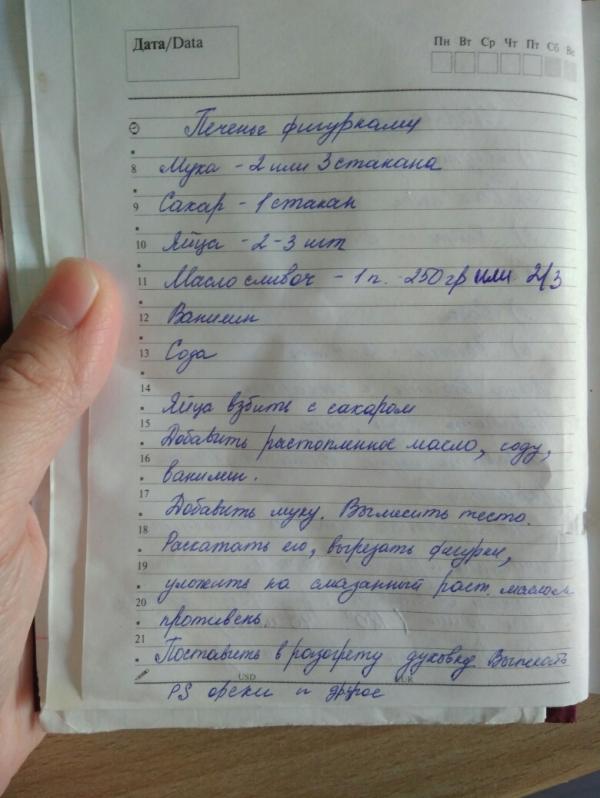 Дата/Data
Пн Вт Ср Чт Пт Сб Вс
Печенье фигурками
8 Мука - 2 или 3 стакана
9 Сахар - 1 стакан
10 Яйца - 2-3 шт
11 Масло сливоч - 1 п. - 250 гр или 2/3
12 Ванилин
13 Сода
14
Яйца взбить с сахаром
15
Добавить растопленное масло, соду,
16
ванилин.
17
Добавить муку. Вымесить тесто.
18
Раскатать его, вырезать фигурки,
19
уложить на смазанный раст. маслом
20
противень.
21
Поставить в разогрету духовку. Выпекать
USD EUR
PS орехи и другое